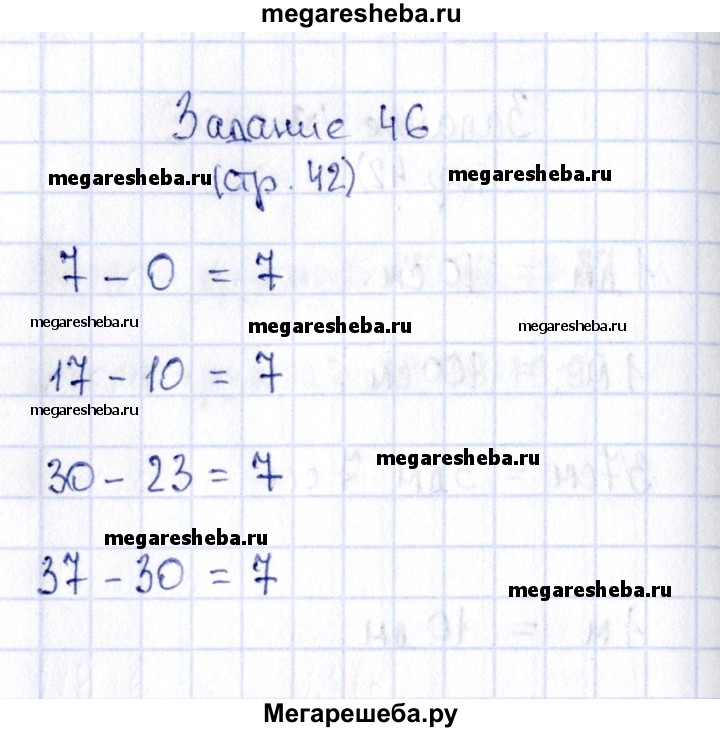 megaresheba.ru
Задание 46
megaresheba.ru (стр. 42) megaresheba.ru
7 - 0 = 7
megaresheba.ru megaresheba.ru megaresheba.ru
17 - 10 = 7
megaresheba.ru
30 - 23 = 7 megaresheba.ru
megaresheba.ru
37 - 30 = 7 megaresheba.ru
Мегарешеба.ру